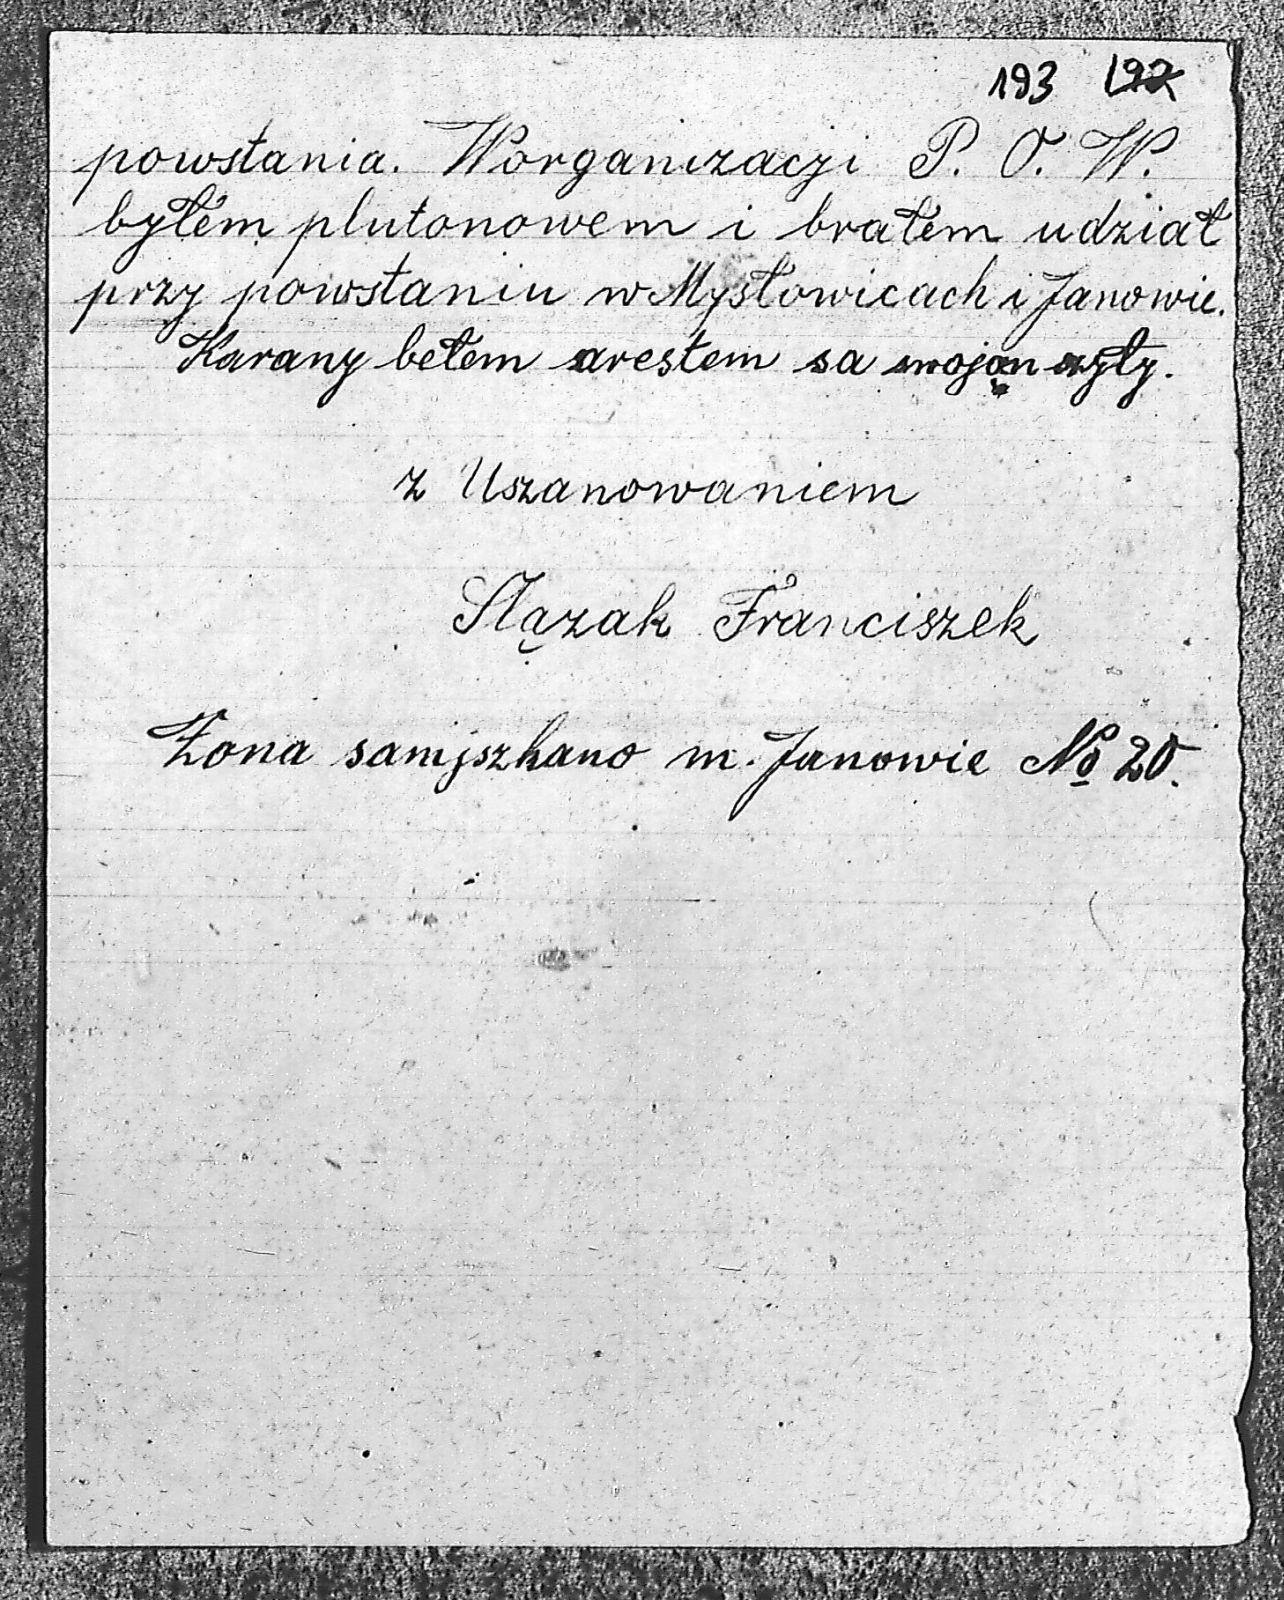 193 192
powstania. Worganizacji P. O. W.
byłem plutonowem i brałem udział
przy powstaniu w Mysłowicach i Janowie.
Karany bełem arestem sa
z Uszanowaniem
Ślązak Franciszek
Żona samjszkano m. Janowie No 20.